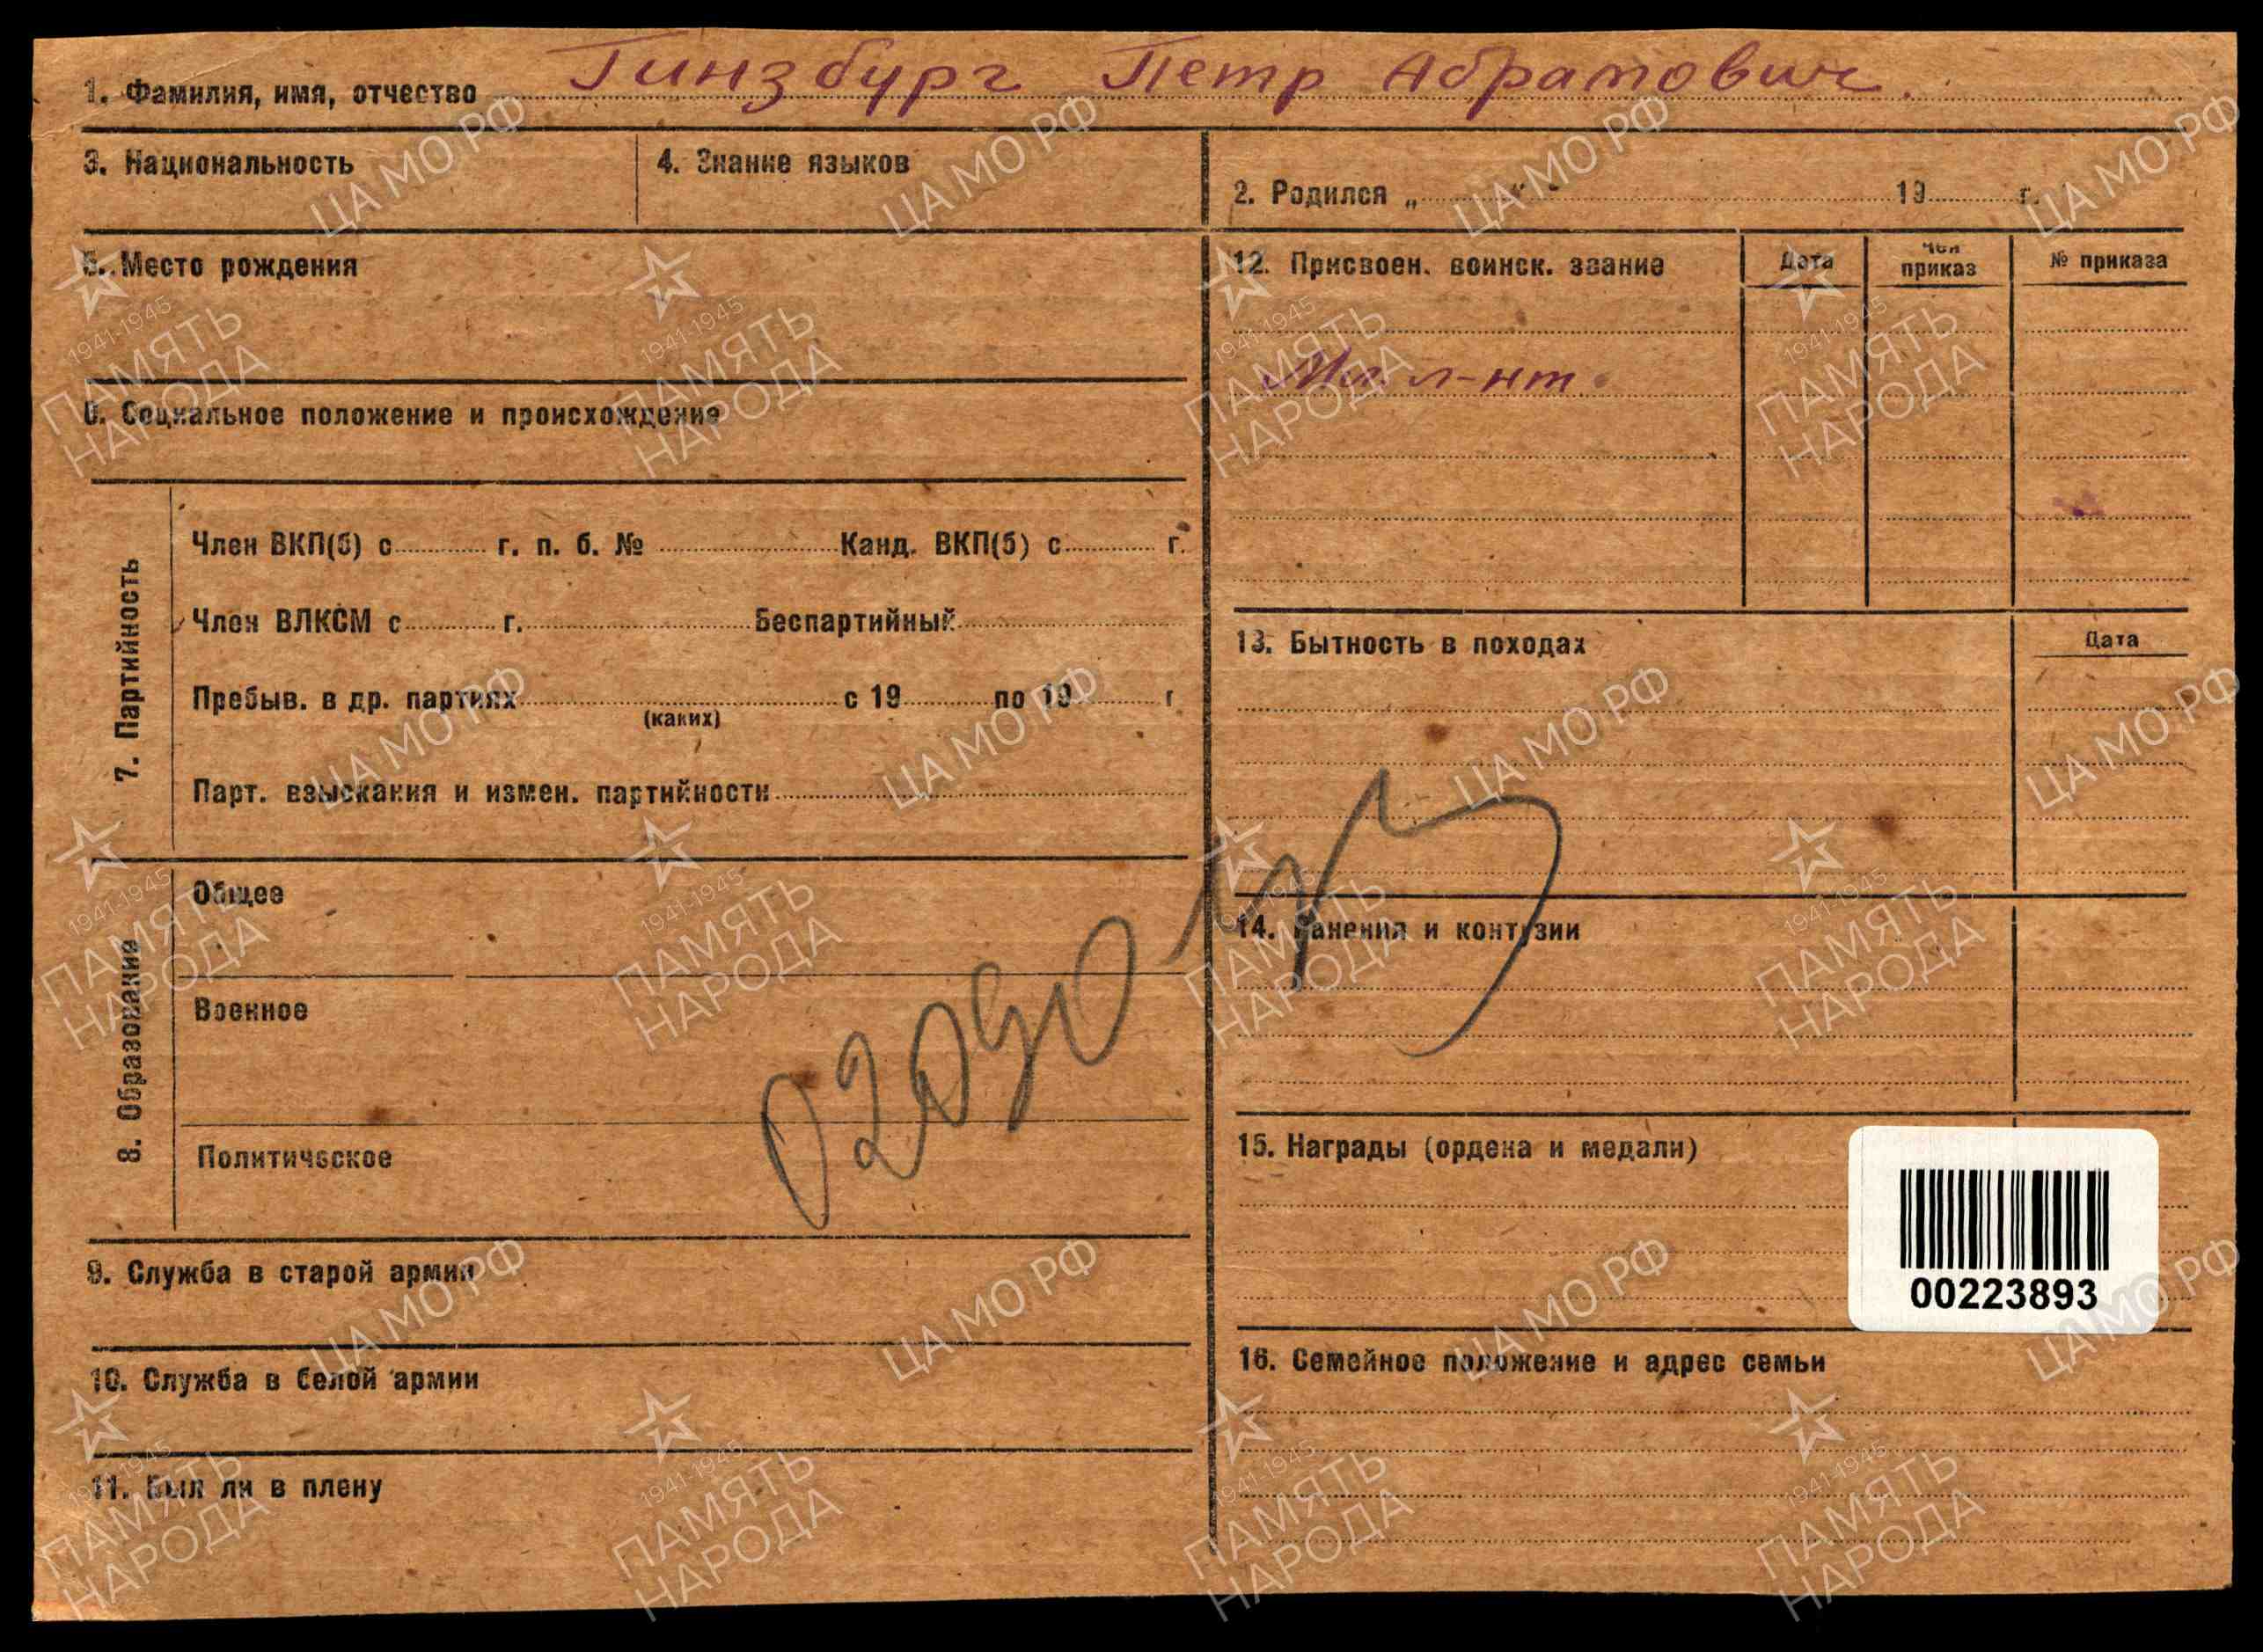 1. Фамилия, имя, отчество Гинзбург Петр Абрамович.
3. Национальность
4. Знание языков
2. Родился „ " 19 г.
5. Место рождения
6. Социальное положение и происхождение
7. Партийность
Член ВКП(б) с г. п. б. № Канд. ВКП(б) с г.
Член ВЛКСМ с г. Беспартийный
Пребыв. в др. партиях с 19 по 19 г
(каких)
Парт. взыскания и измен. партийности
8. Образование
Общее
Военное
Политическое
9. Служба в старой армии
10. Служба в белой армии
11. Был ли в плену
12. Присвоен. воинск. звание Дата Чей приказ № приказа
Мл. л-нт.
13. Бытность в походах Дата
14. Ранения и контузии
15. Награды (ордена и медали)
00223893
16. Семейное положение и адрес семьи
ЦА МО РФ
1941-1945
ПАМЯТЬ
НАРОДА